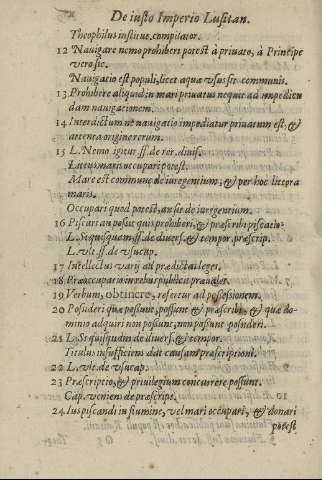 De iusto Imperio Lusitan.
Theophilus institut. compilator.
12 Nauigare nemo prohiberi potest à priuato, à Principe
vero sic.
Nauigatio est populi, licet aqua vsus sit communis.
13 Prohibere aliquid in mari priuatus nequit ad impedien
dam nauigationem.
14 Interdictum ne nauigatio impediatur priuatum est, &
attenta origine rerum.
15 L. Nemo igitur ff. de rer. diuis.
Littus maris occupari potest.
Mare est commune de iure gentium, & per hoc littora
maris.
Occupari quod potest, an sit de iur. gentium.
16 Piscari an possit quis prohiberi, & præscribi piscatio.
L. Si quisquam ff. de diuers. & tempor. præscrip.
L. vlt. ff. de vsucap.
17 Intellectus varij ad prædictas leges.
18 Præoccupatio in rebus publicis præualet.
19 Verbum, obtincre, refertur ad possessionem.
20 Possideri quæ possunt, possunt & præscribi, & quæ do-
minio adquiri non possunt, non possunt possideri.
21 L. Si quisquam de diuers. & tempor.
Titulus insufficiens dat causam præscriptioni.
22 L. vlt. de vsucap.
23 Præscriptio, & priuilegium concurrere possunt.
Cap. veniens de præscript.
24 Ius piscandi in flumine, vel mari occupari, & donari
potest